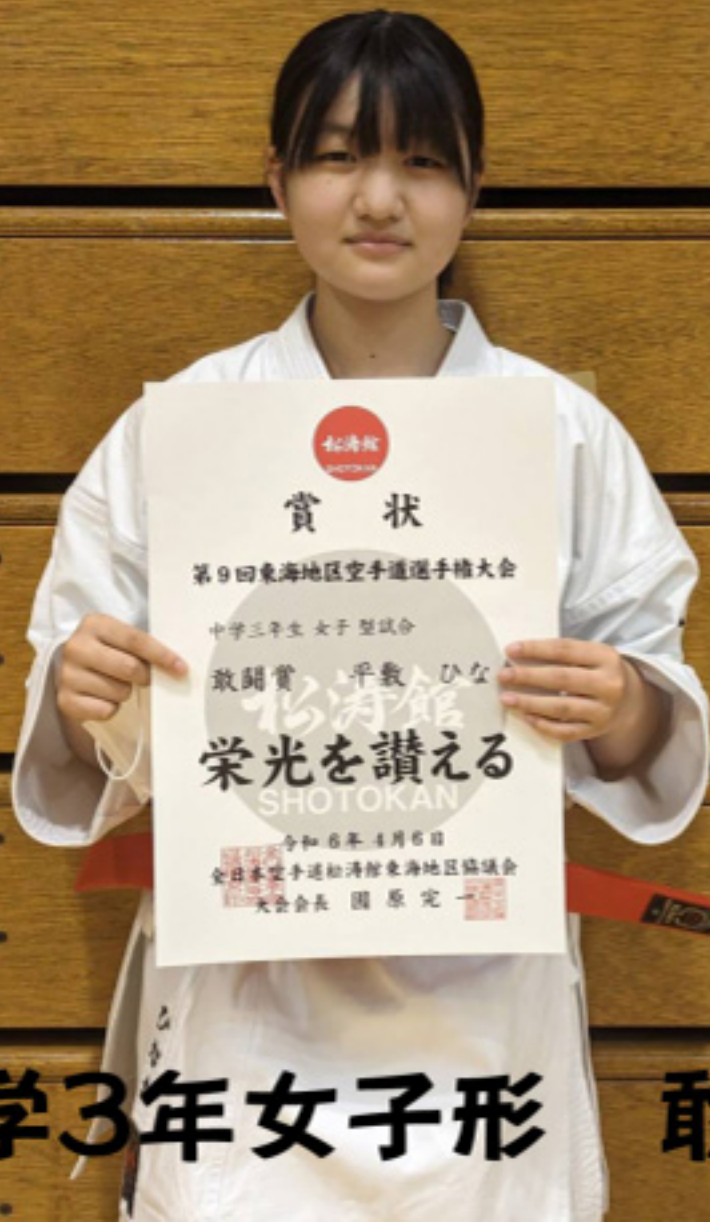 松涛館
SHOTOKAN
賞 状
第9回東海地区空手道選手権大会
中学三年生 女子 型試合
敢闘賞 平敷 ひな
松涛館
栄光を讃える
SHOTOKAN
令和6年4月6日
全日本空手道松涛館東海地区協議会
大会会長 國原完一
学3年女子形 敢